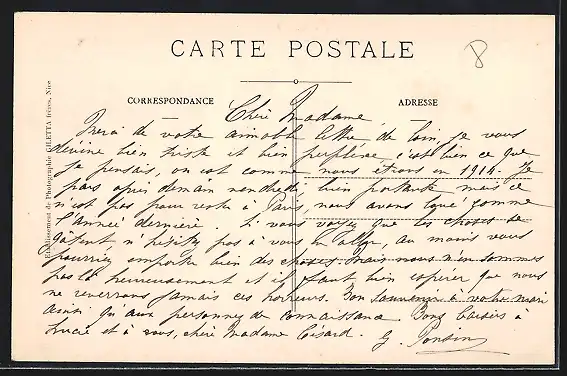 CARTE POSTALE
8
CORRESPONDANCE
ADRESSE
Etablissement de Photographie GILETTA frères, Nice
Chère Madame
Merci de votre aimable lettre de loin, je vous
devine bien triste et bien perplexe, c'est bien ce que
je pensais, on est comme nous étions en 1914. Je
pars après demain vendredi, bien portante mais ce
n'est pas pour rester à Paris, nous avons loué comme
l'année dernière. Si vous voyez que les choses se
gâtent n'hésitez pas à vous en aller, au moins vous
pourriez emporter bien des choses. Mais nous n'en sommes
pas là heureusement et il faut bien espérer que nous
ne reverrons jamais ces horreurs. Bon souvenir à votre mari
ainsi qu'aux personnes de connaissance. Bons baisers à
Lucie et à vous, chère Madame Césard. G. Ponsin